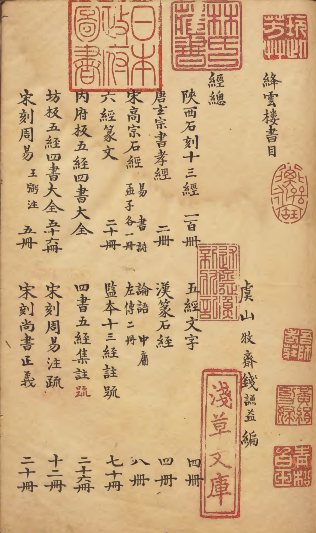 絳雲樓書目
虞山牧齋錢謙益編
經總
陝西石刻十三經 一百冊 五經文字 四冊
唐玄宗書孝經 二冊 漢篆石經 四冊
宋高宗石經 易書詩 孟子各一冊 論語中庸 左傳二冊 八冊
六經篆文 二十冊 監本十三經註疏 七十冊
內府板五經四書大全 四書五經集註疏 二十六冊
坊板五經四書大全 五十六冊 宋刻周易注疏 十二冊
宋刻周易 王弼注 五冊 宋刻尚書正義 二十冊
林氏藏書
日本政府圖書
淺草文庫